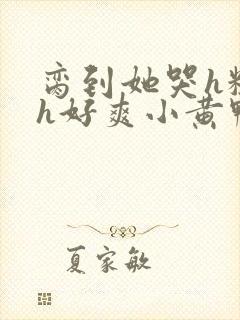 脔到她哭h粗
h好爽小黄鸭
夏家敏